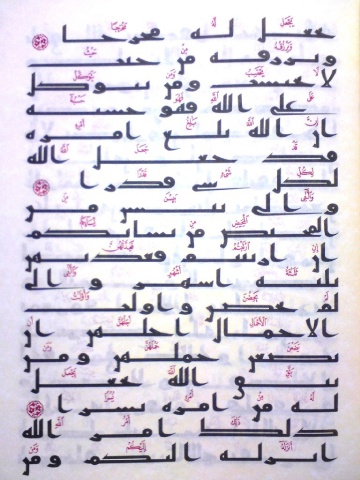 يجعل له مخرجا
ويرزقه من حيث
لا يحتسب ومن يتوكل
على الله فهو حسبه
ان الله بلغ امره
قد جعل الله
لكل شى قدرا
والى يئسن من
المحيض من نسائكم
ان ارتبتم فعدتهن
ثلثه اشهر والى
لم يحضن واولت
الاحمال اجلهن ان
يضعن حملهن ومن
يتق الله يجعل
له من امره يسرا
ذلك امر الله
انزله اليكم ومن